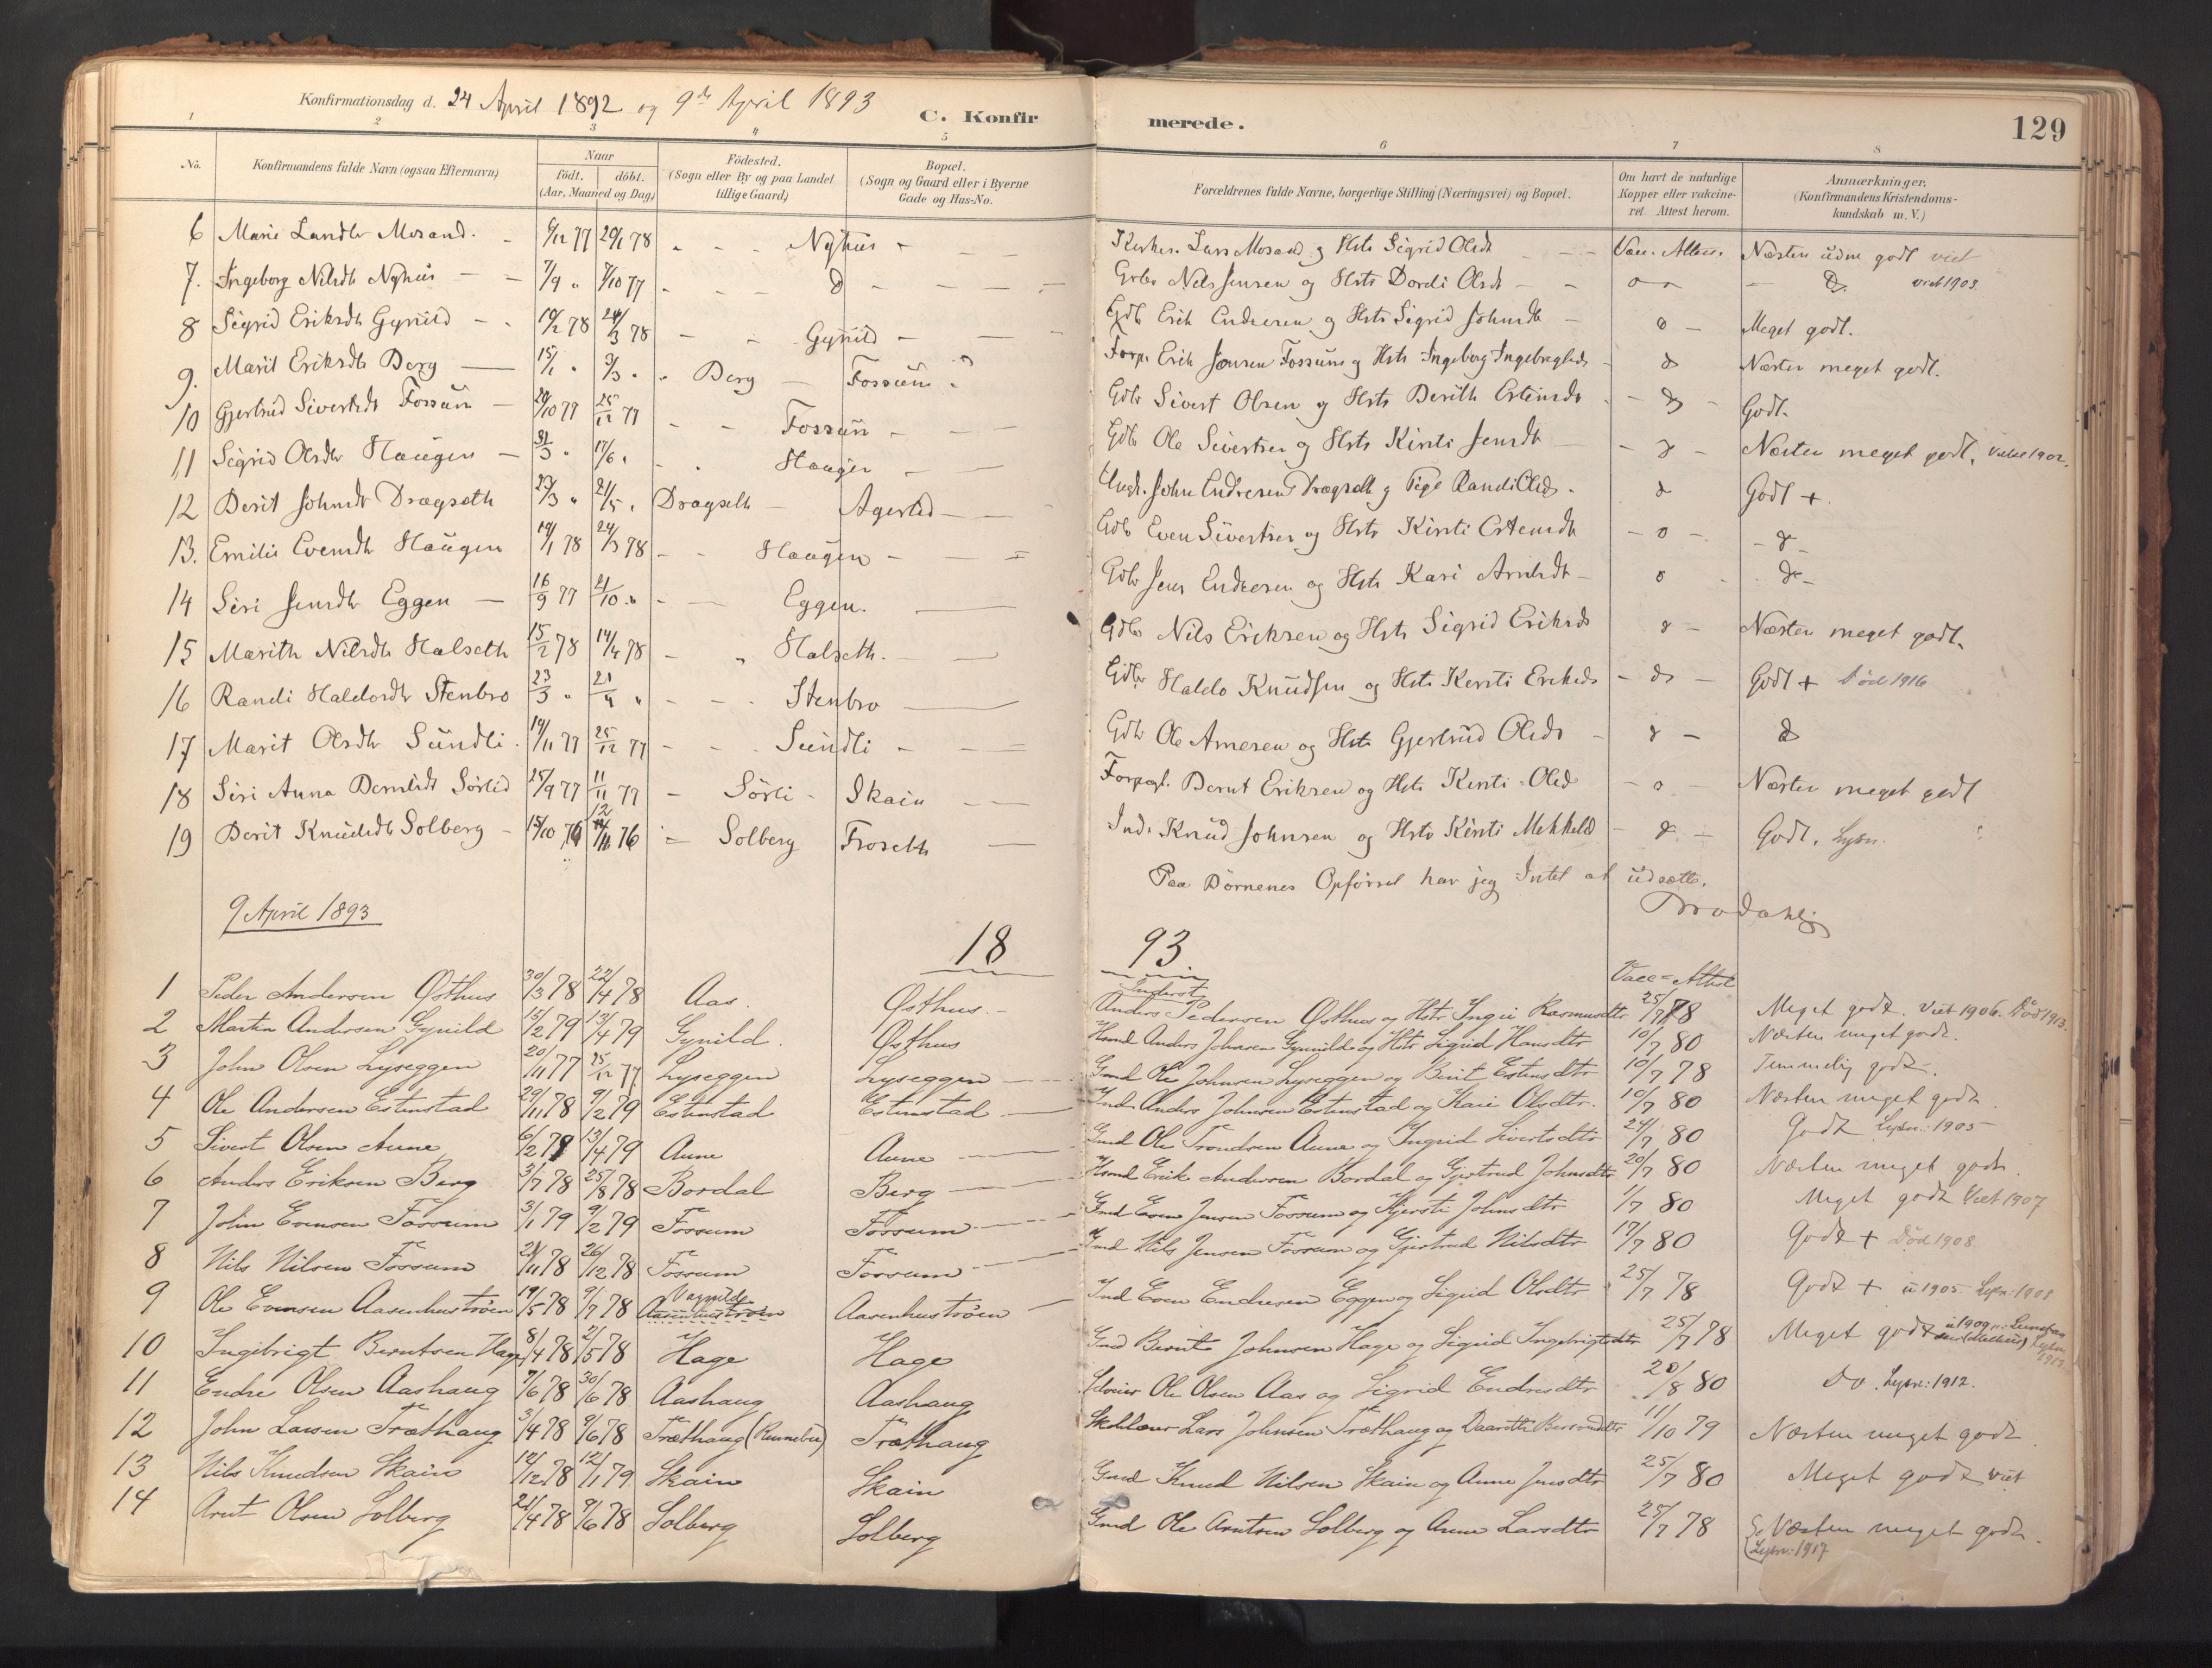 Konfirmationsdag d. 24 April 1892 og 9de April 1893
C. Konfirmerede.
129
1 2 3 4 5 6 7 8
No. Konfirmandens fulde Navn (ogsaa Efternavn) Naar födt. döbt. (Aar, Maaned og Dag) Födested. (Sogn eller By og paa Landet tillige Gaard) Bopæl. (Sogn og Gaard eller i Byerne Gade og Hus-No. Forældrenes fulde Navne, borgerlige Stilling (Næringsvei) og Bopæl. Om havt de naturlige Kopper eller vakcineret. Attest herom. Anmærkninger. (Konfirmandens Kristendomskundskab m. V.)
6 Marie Mosand 6/12 77 20/1 78 Nyhus Lars Mosand og Hstr Sigrid Olsdt Vacc. Attest. Næsten godt viet
7. Ingeborg Nilsdt Nyhus 7/9 " 7/10 77 d Nils Jensen og Hstr Dordi Olsdt viet 1903.
8 Sigrid Eriksdt Gynild 19/2 78 24/3 78 Gynild Gdbr Erik Endresen og Hstr Sigrid Johnsdt Meget godt.
9. Marit Eriksdt Berg 15/1 " 3/3 " Berg Fossum Forp. Erik Jonsen Fossum og Hstr Ingeborg Næsten meget godt.
10 Gjertrud Sivertsdt Fossum 29/10 77 25/12 77 Fossum Gdbr Sivert Olsen og Hstr Berith Estensdt Godt.
11 Sigrid Olsdtr Haugen 31/3 " 17/6 " Haugen Gdbr Ole Sivertsen og Hstr Kirsti Jensdt Næsten meget godt. 1902.
12 Berit Johnsdt Drægseth 27/3 " 21/5 " Drogseth Agersted Ungk. John Endresen Drægseth og Pige Randi Olsd. Godt +.
13. Emilie Evensdt Haugen 19/1 78 24/3 78 Haugen Gdbr Even Sivertsen og Hstr Kirsti Estensdt
14 Siri Jensdtr Eggen 16/9 77 21/10 " Eggen. Gdbr Jens Endresen og Hstr Kari Arntsdt
15 Marith Nilsdt Halseth 15/2 78 14/4 78 Halseth. Gdbr Nils Eriksen og Hstr Sigrid Eriksd Næsten meget godt.
16 Randi Haldosdtr Stenbro 23/3 " 21/4 " Stenbro Gdbr Haldo Knudsen og Hstr Kersti Eriksd Godt + Död 1916
17 Marit Olsdtr Sundli 19/11 77 25/12 77 Sundli Gdbr Ole Arnesen og Hstr Gjertrud Olsdt
18 Siri Anna Berntsdt Sörlid 25/9 77 11/11 77 Sörli Skain Bernt Eriksen og Hstr Kersti Olsd Næsten meget godt
19 Berit Knudsdt Solberg 15/10 76 12/11 76 Solberg Froseth Ind. Knud Johnsen og Hstr Kirsti Mikkelsd Godt. Lysn.
Paa Börnenes Opförsel har jeg Intet at udsætte.
9 April 1893
1893.
Vacc = Attest
1 Peder Andersen Østhus 30/3 78 22/4 78 Aas. Østhus. Inderst Anders Pedersen Østhus og Hstr Ingri Rasmusdtr 25/7 78 Meget godt. Viet 1906. Död 1913.
2 Martin Andersen Gynild 15/2 79 13/4 79 Gynild. Østhus Hsmd Anders Johnsen Gynnild og Hstr Sigrid Hansdtr 10/7 80 Næsten meget godt.
3 John Olsen Lyseggen 20/11 77 25/12 77 Lyseggen Lyseggen Gmd Ole Johnsen Lyseggen og Berit Estensdtr 10/7 78 Temmelig godt.
4 Ole Andersen Estenstad 29/11 78 9/2 79 Estenstad Estenstad Ind. Anders Johnsen Estenstad og Kari Olsdtr. 10/7 80 Næsten meget godt.
5 Sivert Olsen Aune 6/2 79 13/4 79 Aune Aune Gmd Ole Trondsen Aune og Ingrid Sivertsdtr 24/7 80 Godt Lysn: 1905
6 Anders Eriksen Berg 3/7 78 25/8 78 Bordal Berg Hsmd Erik Andersen Bordal og Gjertrud Johnsdtr 20/7 80 Næsten meget godt.
7 John Evensen Fossum 3/1 79 9/2 79 Fossum Fossum Gmd Even Jensen Fossum og Kjersti Johnsdtr 1/7 80 Meget godt Viet 1907
8 Nils Nilsen Fossum 28/11 78 26/12 78 Fossum Fossum Gmd Nils Jensen Fossum og Gjertrud Nilsdtr 17/7 80 Godt + Död 1908.
9 Ole Evensen Aasenhustrøen 19/5 78 9/7 78 Aasenhustrøen Aasenhustrøen Ind Even Endresen Eggen og Sigrid Olsdtr 25/7 78 Godt + 1905. Lysn: 1908
10 Ingebrigt Berntsen Hage 8/4 78 2/5 78 Hage Hage Gmd Bernt Johnsen Hage og Sigrid Ingebrigtsdtr 25/7 78 Meget godt 1909 Lysn: 1912.
11 Endre Olsen Aashaug 7/6 78 30/6 78 Aashaug Aashaug Ole Olsen Aas og Sigrid Endresdtr 20/8 80 Do. Lysn: 1912.
12 John Larsen Træthaug 3/4 78 9/6 78 Træthaug (Rennebu) Træthaug Lars Johnsen Træthaug og 11/10 79 Næsten meget godt
13 Nils Knudsen Skain 12/12 78 12/1 79 Skain Skain Gmd Knud Nilsen Skain og Anne Jensdtr 25/7 80 Meget godt viet
14 Arnt Olsen Solberg 21/4 78 9/6 78 Solberg Solberg Gmd Ole Arntsen Solberg og Anne Larsdtr 25/7 78 Næsten meget godt.
Lysn: 1917